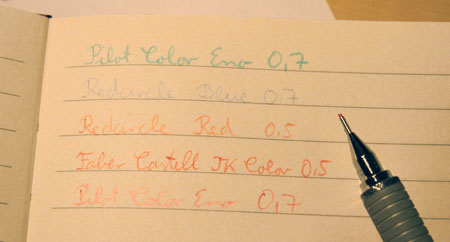 Pilot Color Eno 0,7
Redcircle Blue 0,7
Redcircle Red 0.5
Faber Castell TK Color 0,5
Pilot Color Eno 0,7